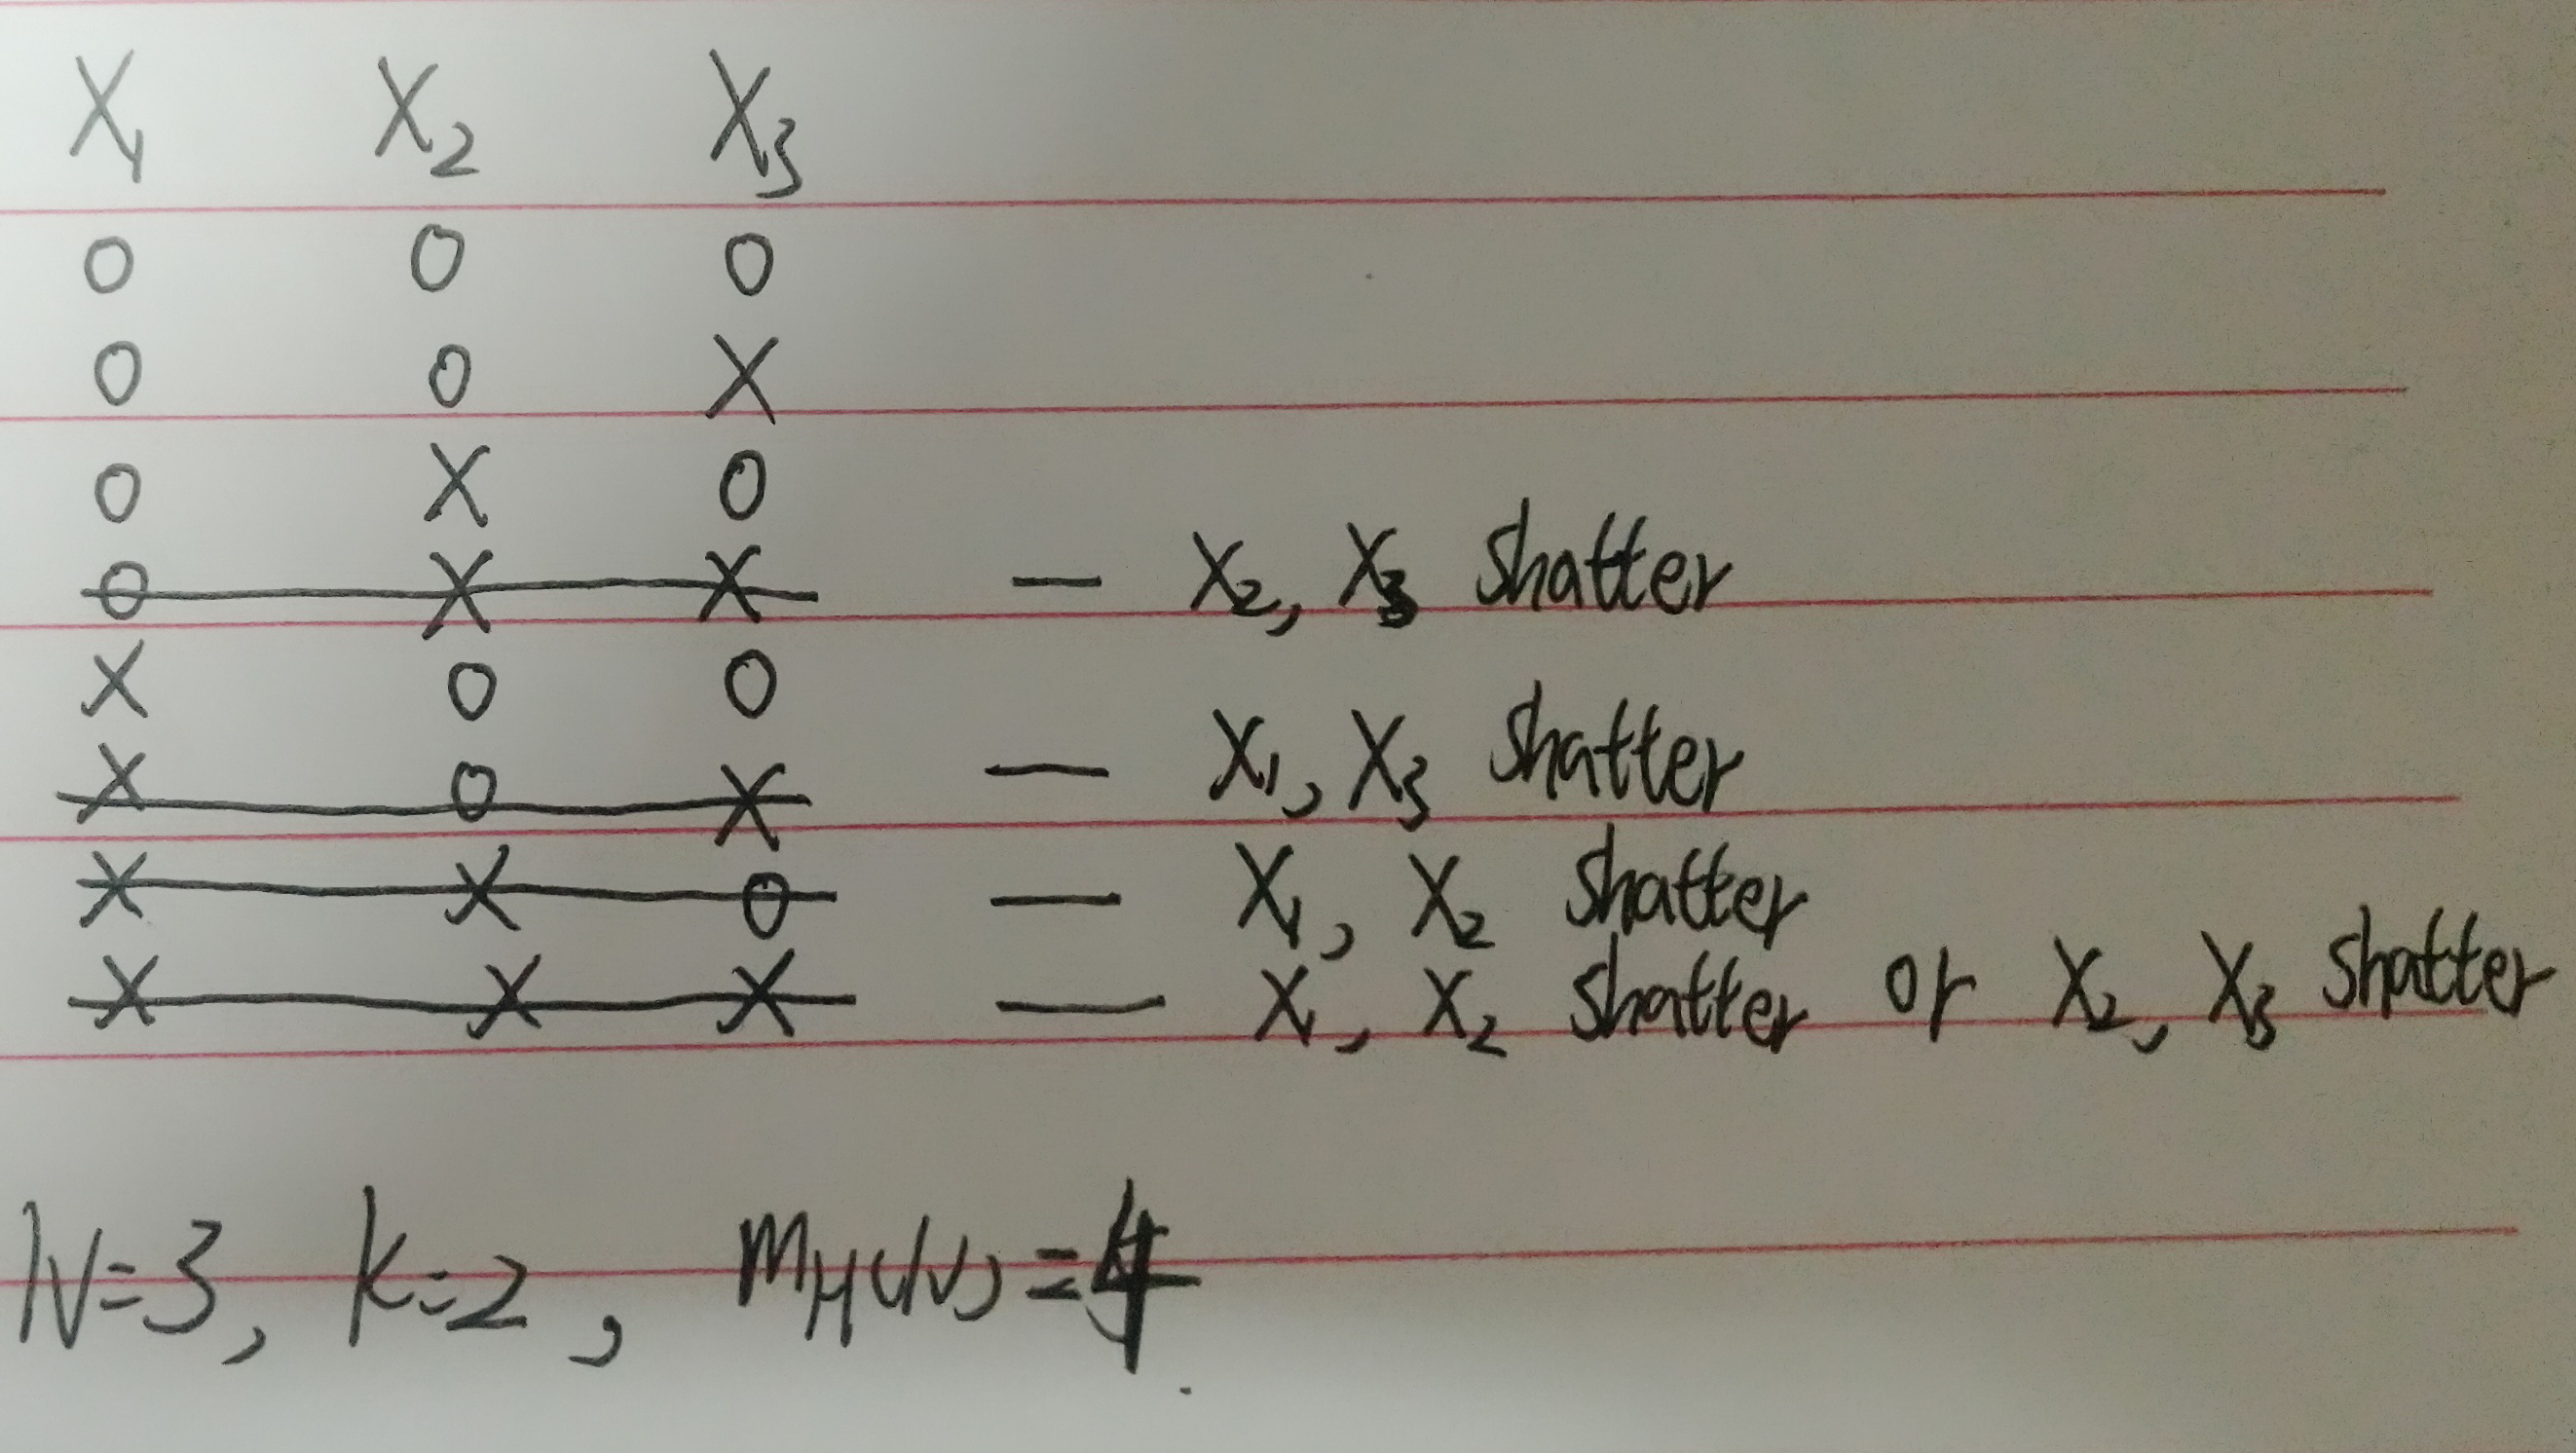 X₁ X₂ X₃
O O O
O O X
O X O
O X X — X₂, X₃ shatter
X O O
X O X — X₁, X₃ shatter
X X O — X₁, X₂ shatter
X X X — X₁, X₂ shatter or X₂, X₃ shatter
N=3, K=2, mH(N)=4.